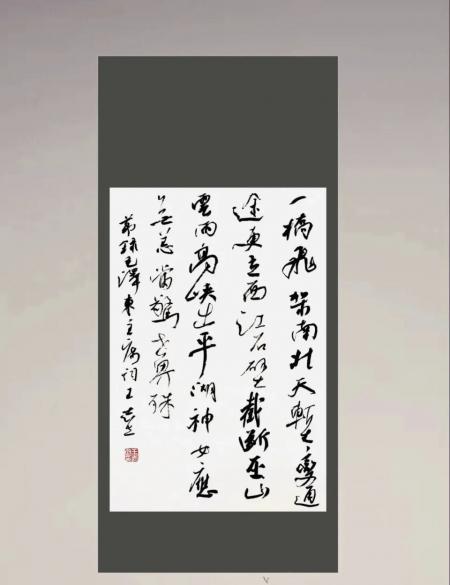 一橋飛架南北天塹變通
途更立西江石壁截斷巫山
雲雨高峽出平湖神女應
無恙當驚世界殊
節錄毛澤東主席詞王